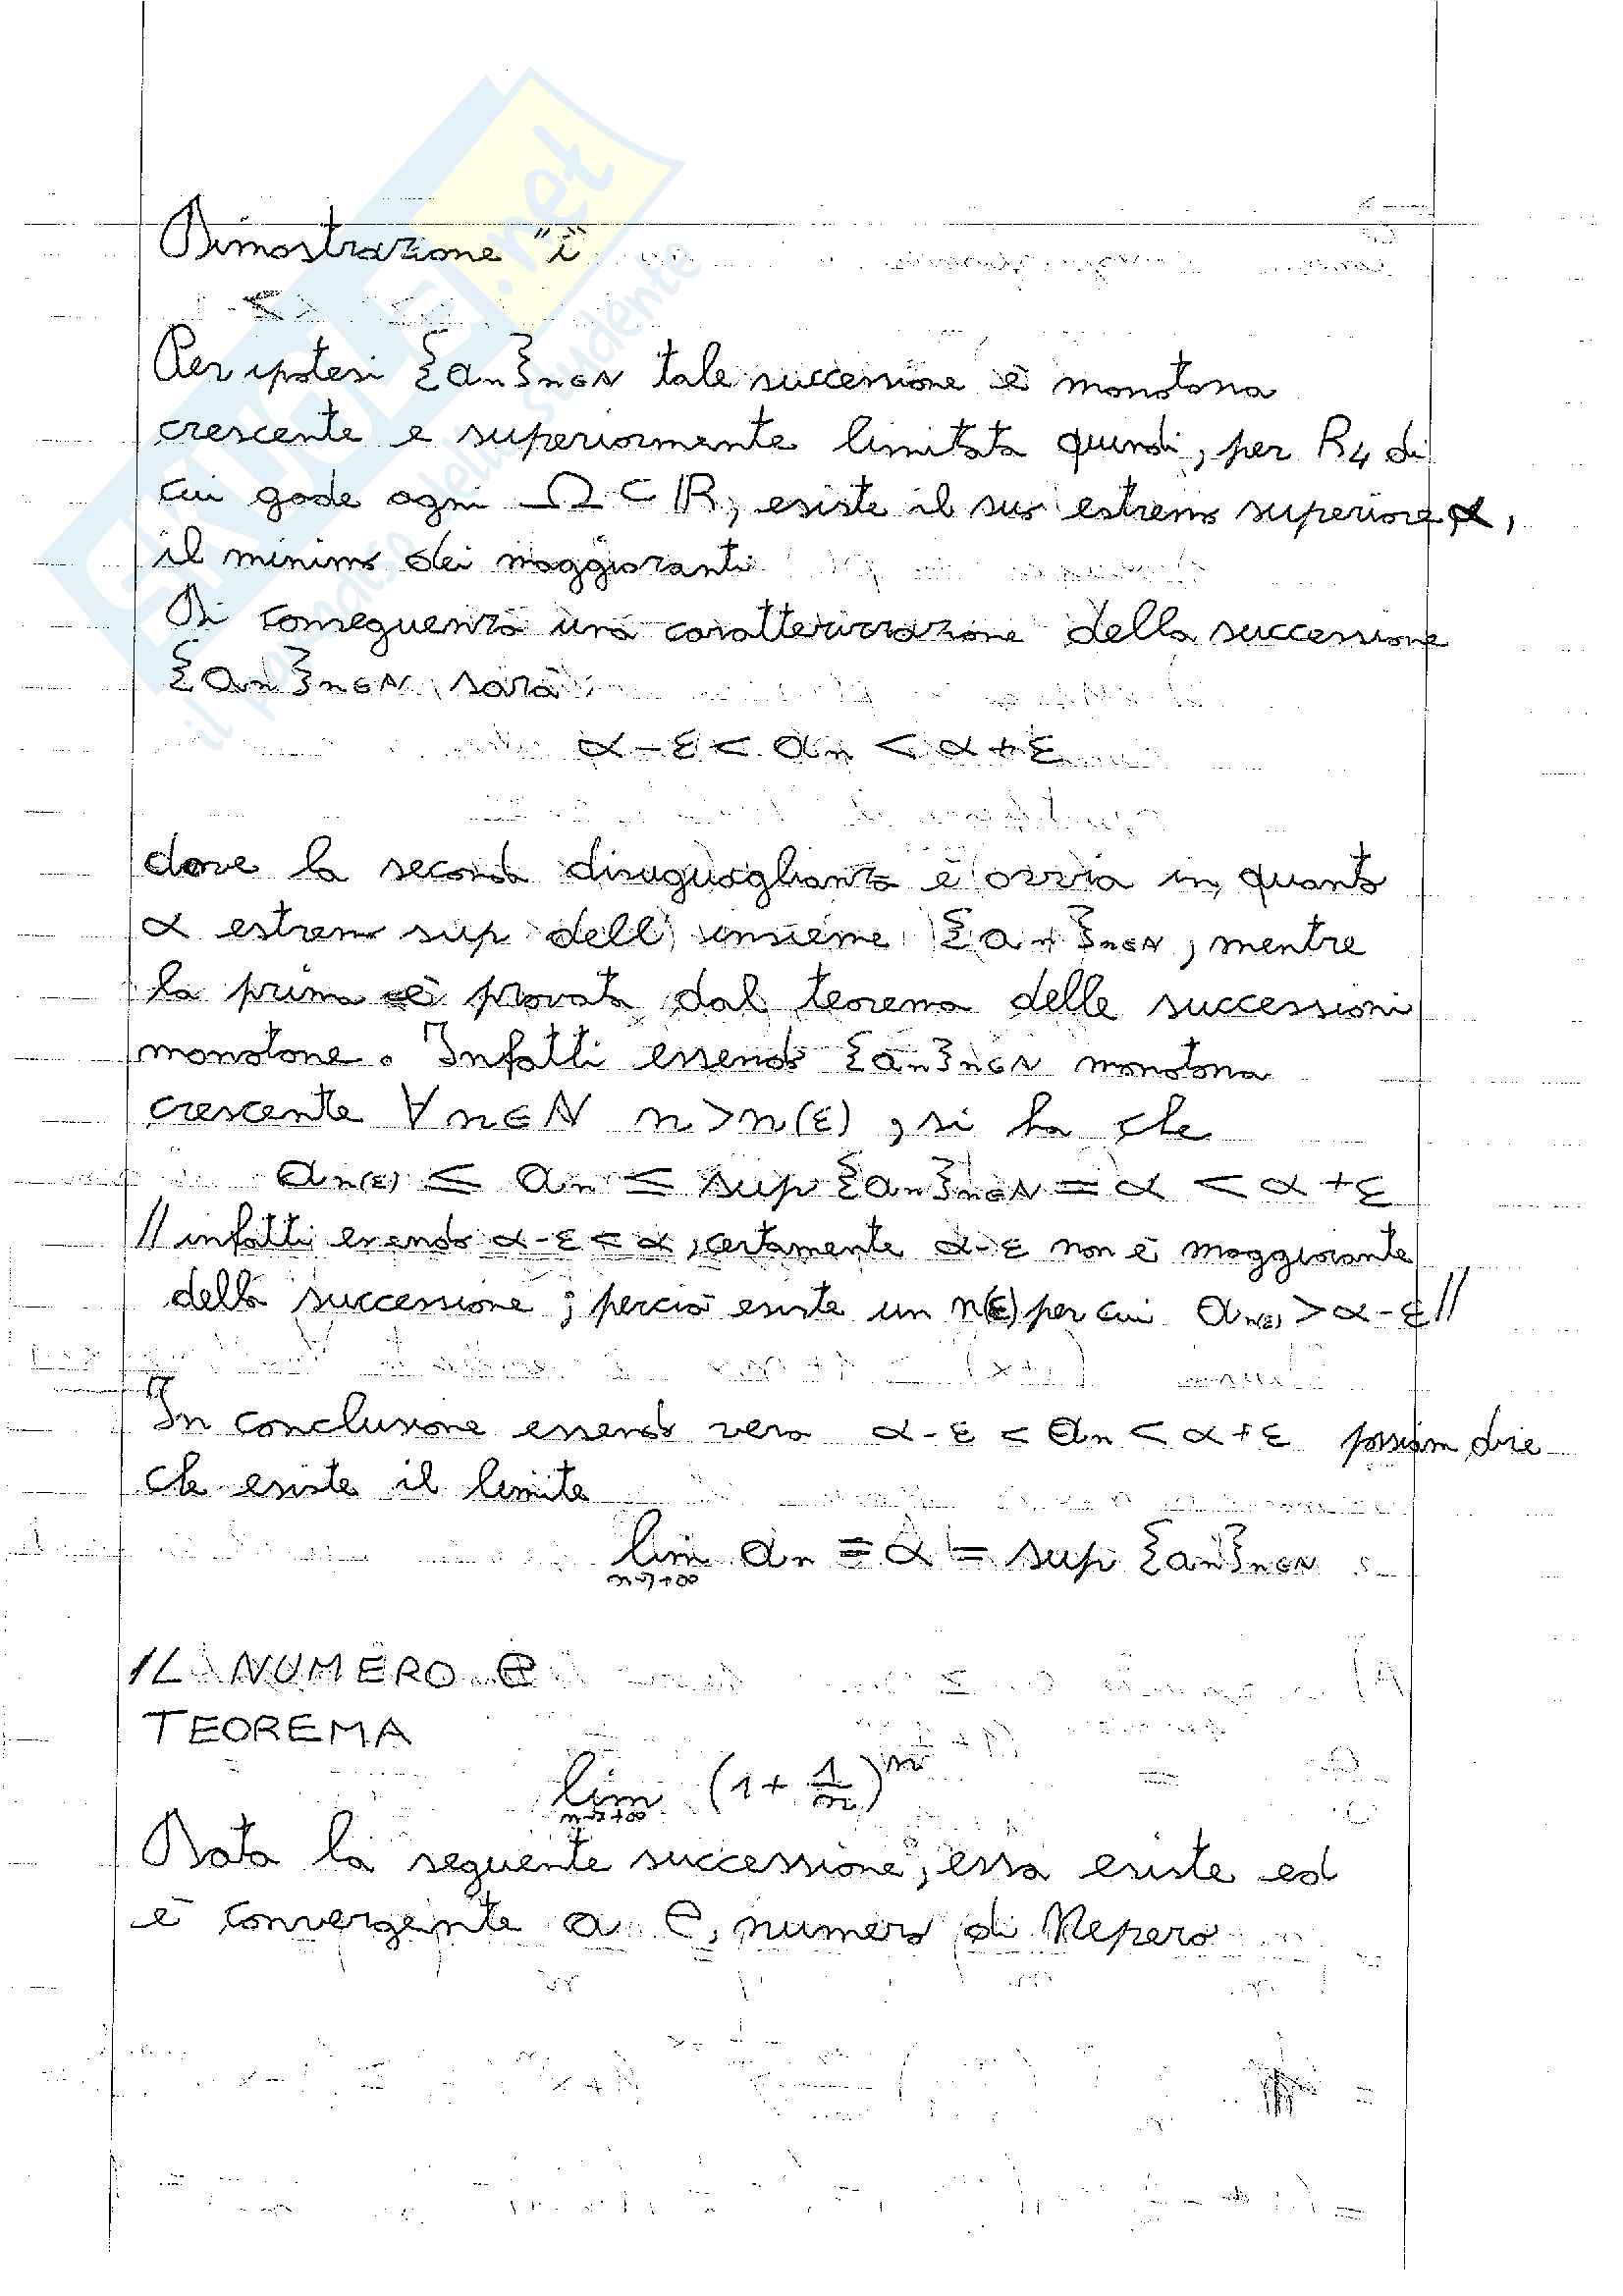 Dimostrazione "i"
Per ipotesi {an}n∈N tale successione è monotona
crescente e superiormente limitata quindi, per R4 di
cui gode ogni Ω ⊂ ℝ, esiste il suo estremo superiore α,
il minimo dei maggioranti
Di conseguenza una caratterizzazione della successione
{an}n∈N sarà
α-ε < an < α+ε
dove la seconda disuguaglianza è ovvia in quanto
α estremo sup dell'insieme {an}n∈N, mentre
la prima è provata dal teorema delle successioni
monotone. Infatti essendo {an}n∈N monotona
crescente ∀n∈N n>n(ε), si ha che
an(ε) ≤ an ≤ sup {an}n∈N = α < α+ε
// infatti essendo α-ε < α, certamente α-ε non è maggiorante
della successione; perciò esiste un n(ε) per cui an(ε) > α-ε //
In conclusione essendo vero α-ε < an < α+ε possiam dire
che esiste il limite
lim n→+∞ an = α = sup {an}n∈N
IL NUMERO e
TEOREMA
lim n→+∞ (1+1/n)^n
Data la seguente successione, essa esiste ed
è convergente a e, numero di Nepero
.net
il paradiso dello studente